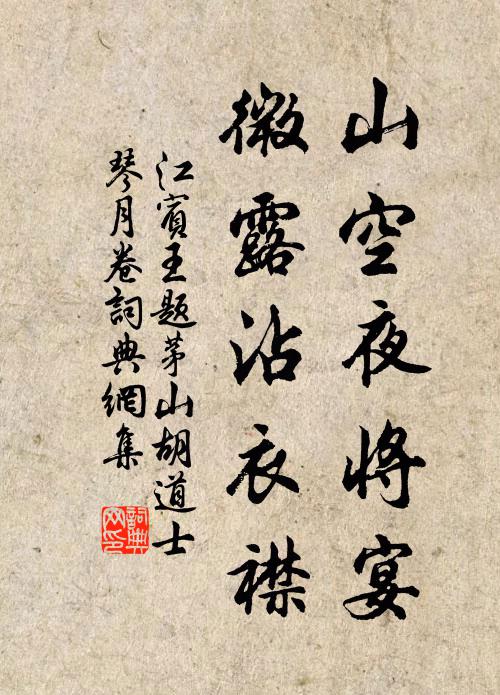 山空夜将宴
微露沾衣襟
江賓王題茅山胡道士
琴月卷詞典網集
詞典网印